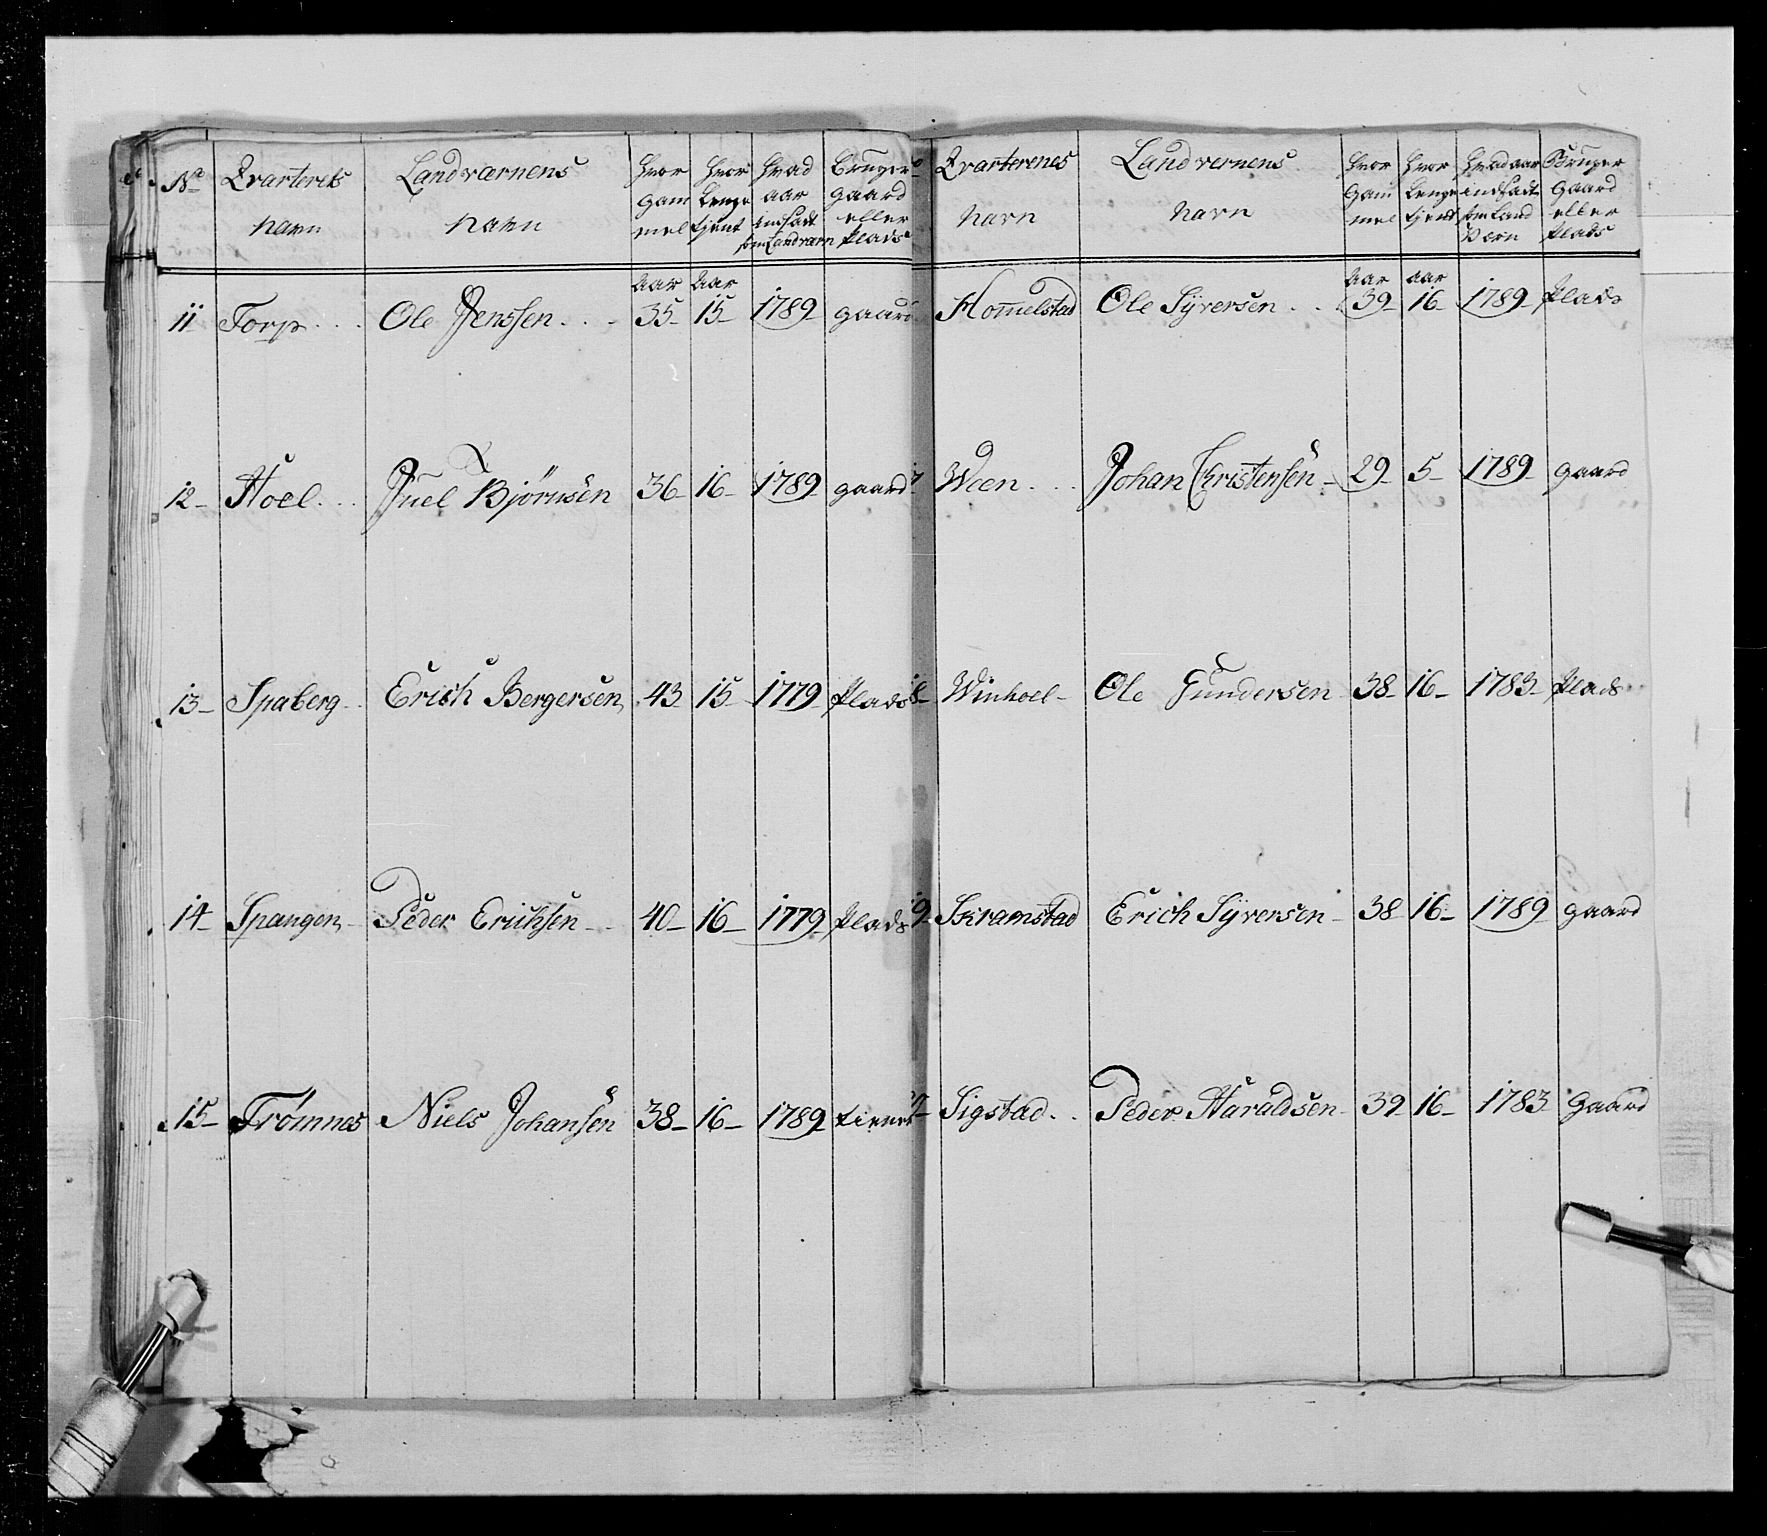 No Qvarterets Navn | Landværnens Navn | Hvor Gammel | Hvor Lenge tjent | Hvad aar indsadt som Landværn | Bruger gaard eller Plads
Aar Aar
11 Torp Ole Jenssen 35 15 1789 gaard
12 Hoel Juel Bjørnsen 36 16 1789 gaard
13 Spaberg Erich Bergersen 43 15 1779 Plads
14 Spangen Peder Erichsen 40 16 1779 Plads
15 Trømnes Niels Johansen 38 16 1789 tiener
Qvarterenes Navn | Landvernens Navn | Hvor Gammel | Hvor Lenge tjent | Hvad aar indsadt som Land Værn | Bruger Gaard eller Plads
Aar aar
Hommelstad Ole Syversen 39 16 1789 Plads
Ween Johan Christensen 29 5 1789 gaard
Winhoel Ole Gundersen 38 16 1783 Plads
Skramstad Erich Syversen 38 16 1789 gaard
Sigstad Peder Haraldsen 39 16 1783 Gaard